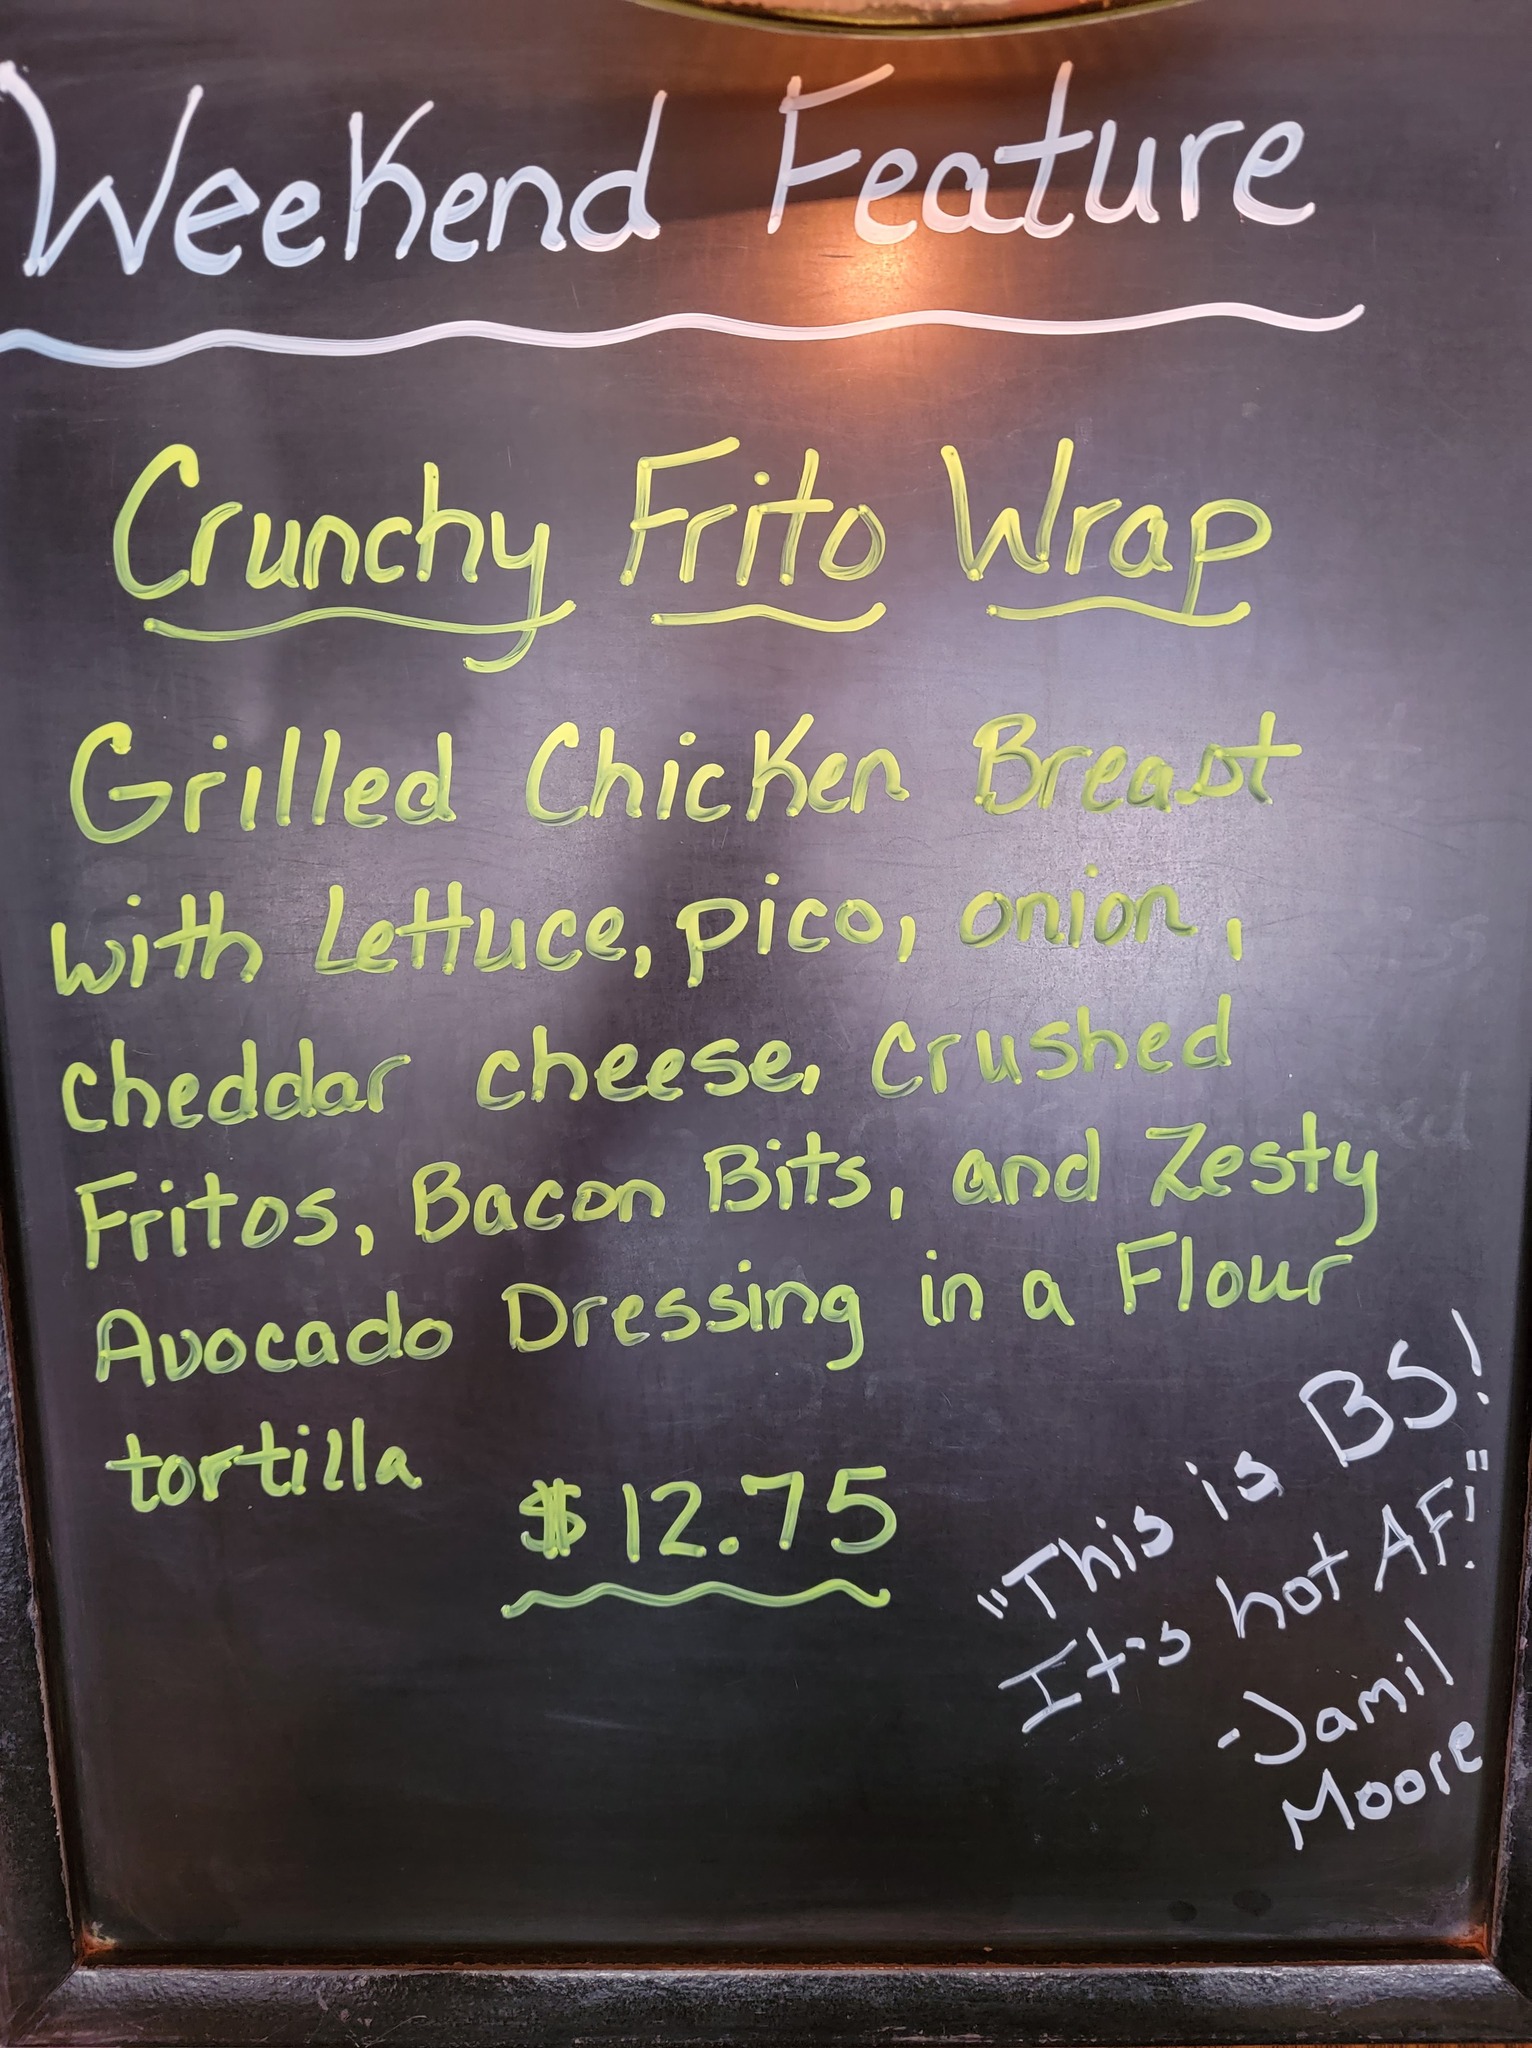 Weekend Feature
Crunchy Frito Wrap
Grilled Chicken Breast
with Lettuce, pico, onion,
cheddar cheese, Crushed
Fritos, Bacon Bits, and Zesty
Avocado Dressing in a Flour
tortilla
$12.75
"This is BS!
It's hot AF!"
-Jamil
Moore